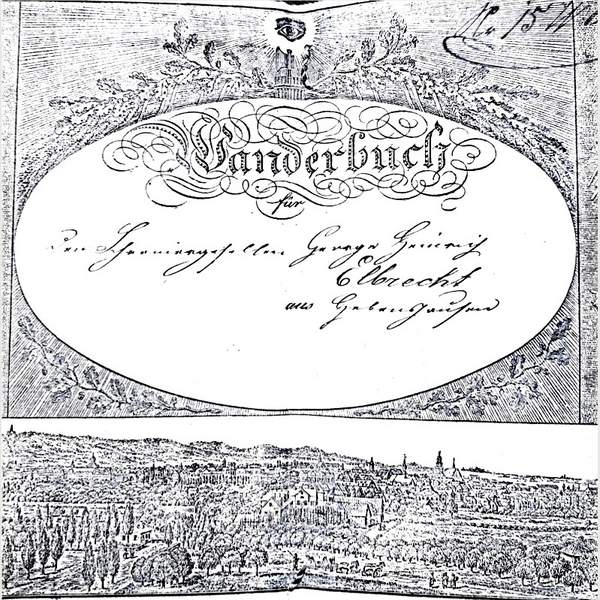 No 15
Wanderbuch
für
den Schreinergesellen George Heinrich
Elbrecht
aus Hebenshausen